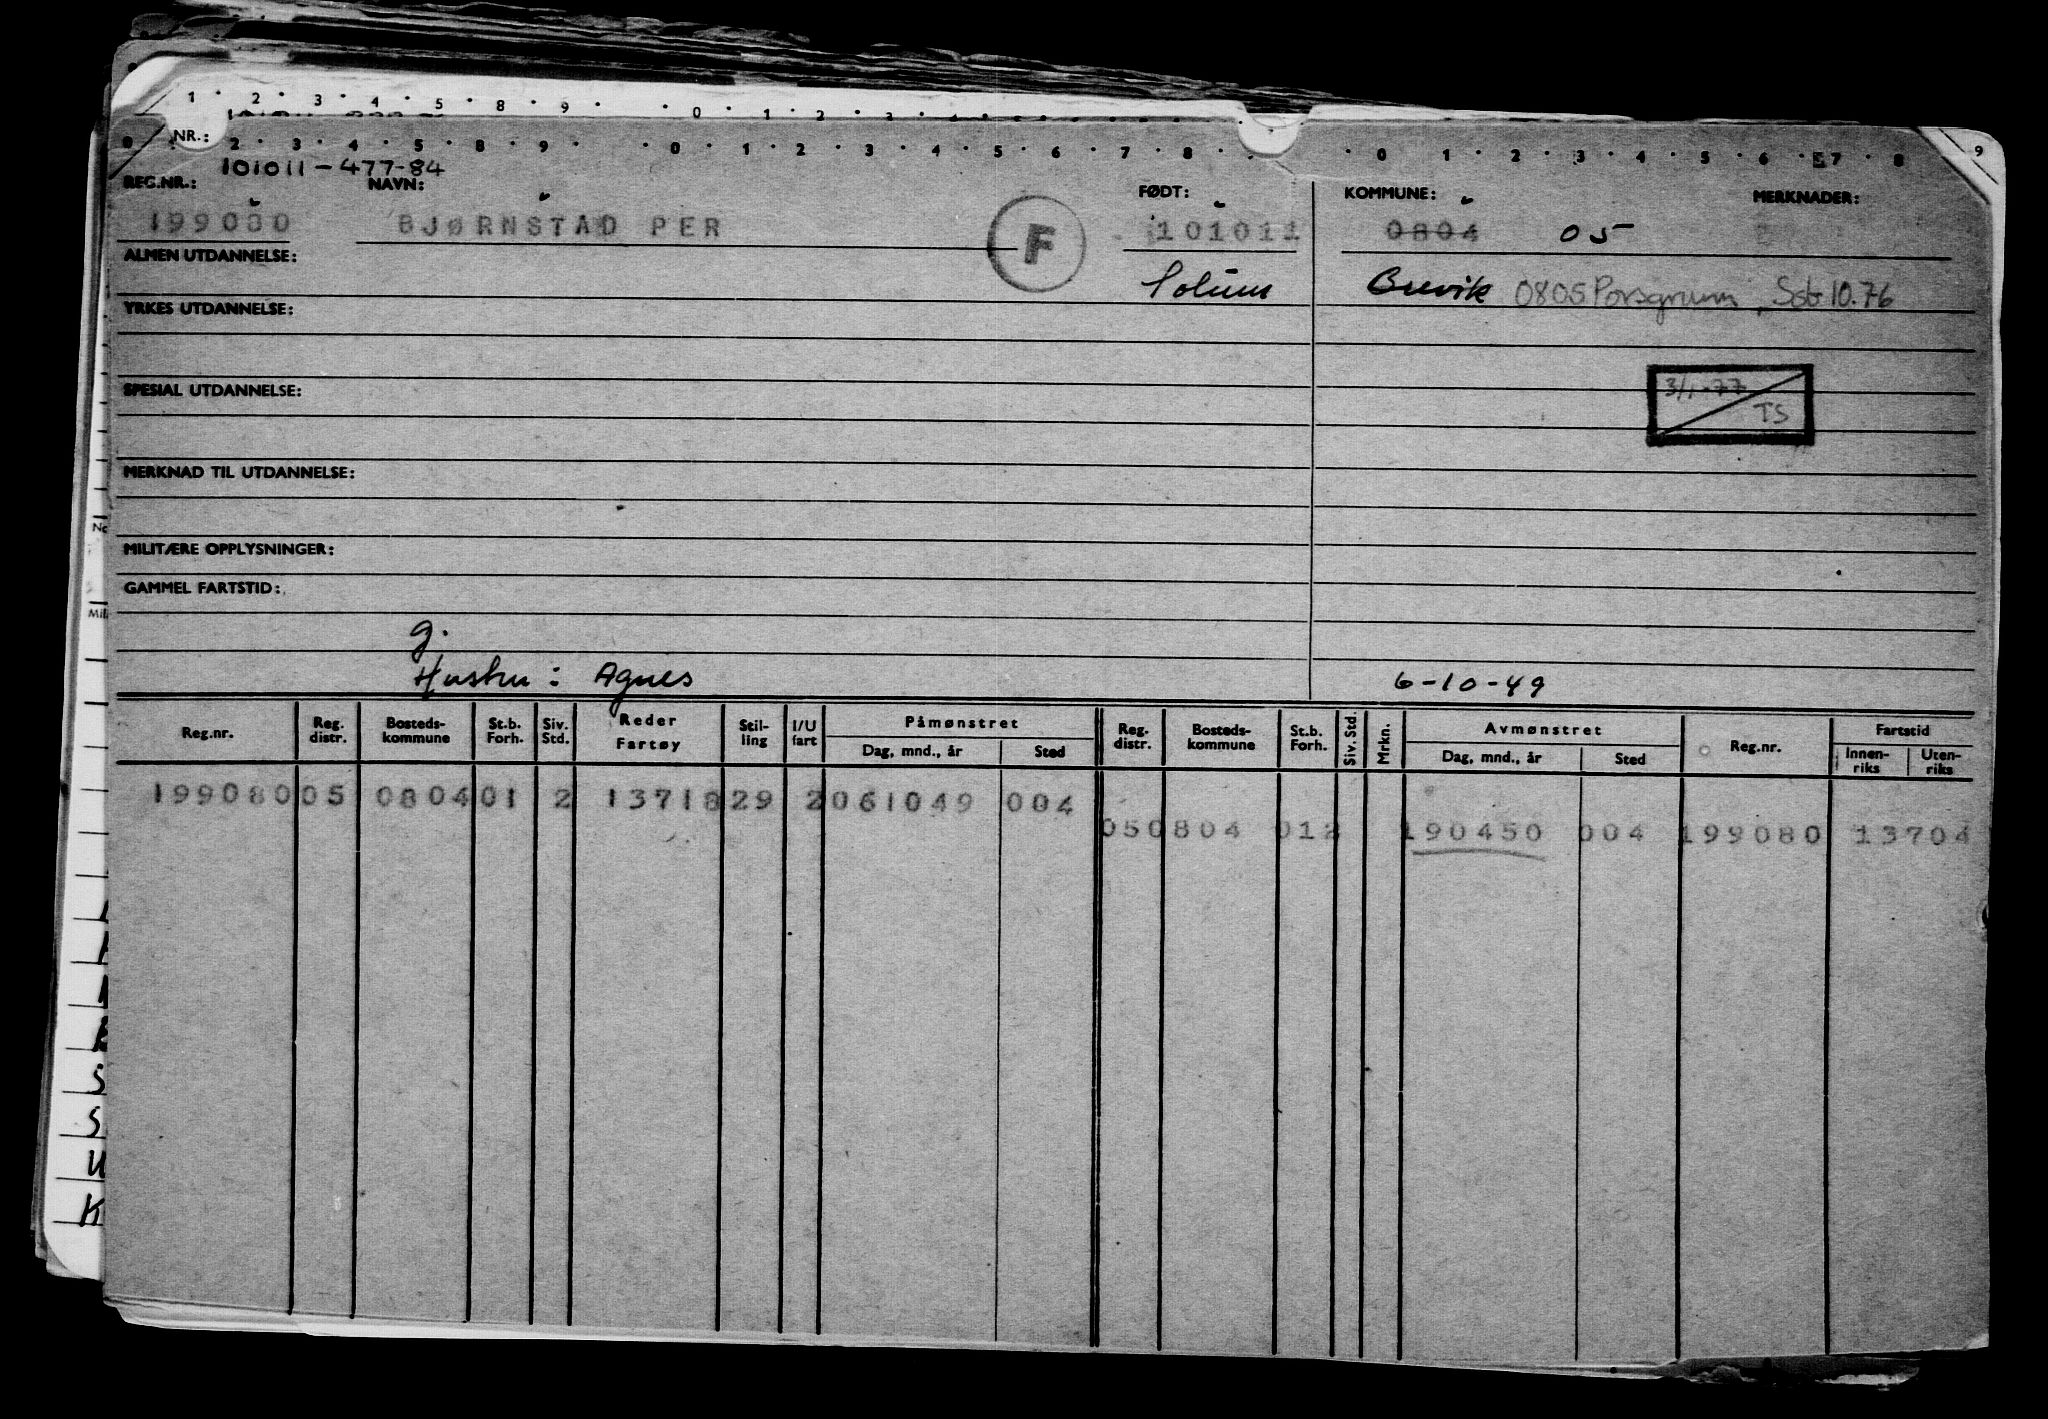 1 2 3 4 5 8 9 0 1 2 3
NR.: 2 3 4 5 8 9 0 1 2 3 4 5 6 7 8 0 1 2 3 4 5 6 7 8 9
101011-477-84
REG.NR.: NAVN: FØDT: KOMMUNE: MERKNADER:
199080 BJØRNSTAD PER F 101011 0804 05
ALMEN UTDANNELSE:
Solum Brevik 0805 Porsgrunn, Sst 10.76
YRKES UTDANNELSE:
SPESIAL UTDANNELSE: 3/1-77
TS
MERKNAD TIL UTDANNELSE:
MILITÆRE OPPLYSNINGER:
GAMMEL FARTSTID:
g.
Hustru: Agnes 6-10-49
Reg.nr. Reg. distr. Bosteds-kommune St.b. Forh. Siv. Std. Reder Fartøy Stil-ling I/U fart Påmønstret Dag, mnd., år Sted Reg. distr. Bosteds-kommune St.b. Forh. Siv. Std. Mrkn. Avmønstret Dag, mnd., år Sted Reg.nr. Fartstid Innen-riks Uten-riks
199080 05 0804 01 2 13718 29 2 061049 004
05 0804 012 190450 004 199080 13704